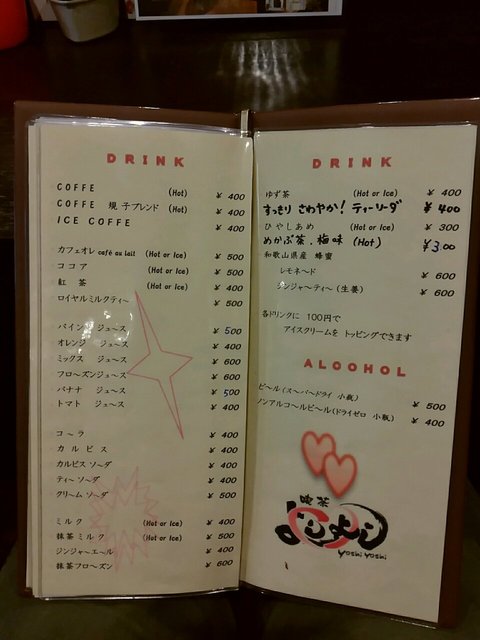 DRINK
COFFE (Hot) ¥ 400
COFFE 規子ブレンド (Hot) ¥ 400
ICE COFFE ¥ 400
カフェオレ café au lait (Hot or Ice) ¥ 500
ココア (Hot or Ice) ¥ 500
紅 茶 (Hot or Ice) ¥ 400
ロイヤルミルクティ～ ¥ 500
パイン ジュース ¥ 500
オレンジ ジュース ¥ 400
ミックス ジュース ¥ 600
フローズンジュース ¥ 600
バナナ ジュース ¥ 500
トマト ジュース ¥ 400
コーラ ¥ 400
カルピス ¥ 400
カルピス ソーダ ¥ 400
ティー ソーダ ¥ 400
クリーム ソーダ ¥ 500
ミルク (Hot or Ice) ¥ 400
抹茶 ミルク (Hot or Ice) ¥ 500
ジンジャーエール ¥ 400
抹茶フローズン ¥ 600
DRINK
ゆず茶 (Hot or Ice) ¥ 400
すっきり さわやか! ティーソーダ ¥ 400
ひやしあめ (Hot or Ice) ¥ 300
めかぶ茶.梅味 (Hot) ¥300
和歌山県産 蜂蜜
レモネード (Hot or Ice) ¥ 600
ジンジャーティー (生姜) ¥ 600
各ドリンクに 100円で
アイスクリームを トッピングできます
ALOOHOL
ビール(スーパードライ 小瓶) ¥ 500
ノンアルコールビール(ドライゼロ 小瓶) ¥ 400
喫茶
よしよし
yoshi yoshi